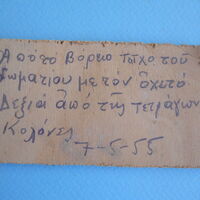 Από το βόρειο τοίχο του
δωματίου με τον οχετό
Δεξιά από της τετράγων
Κολόνες
7-5-55